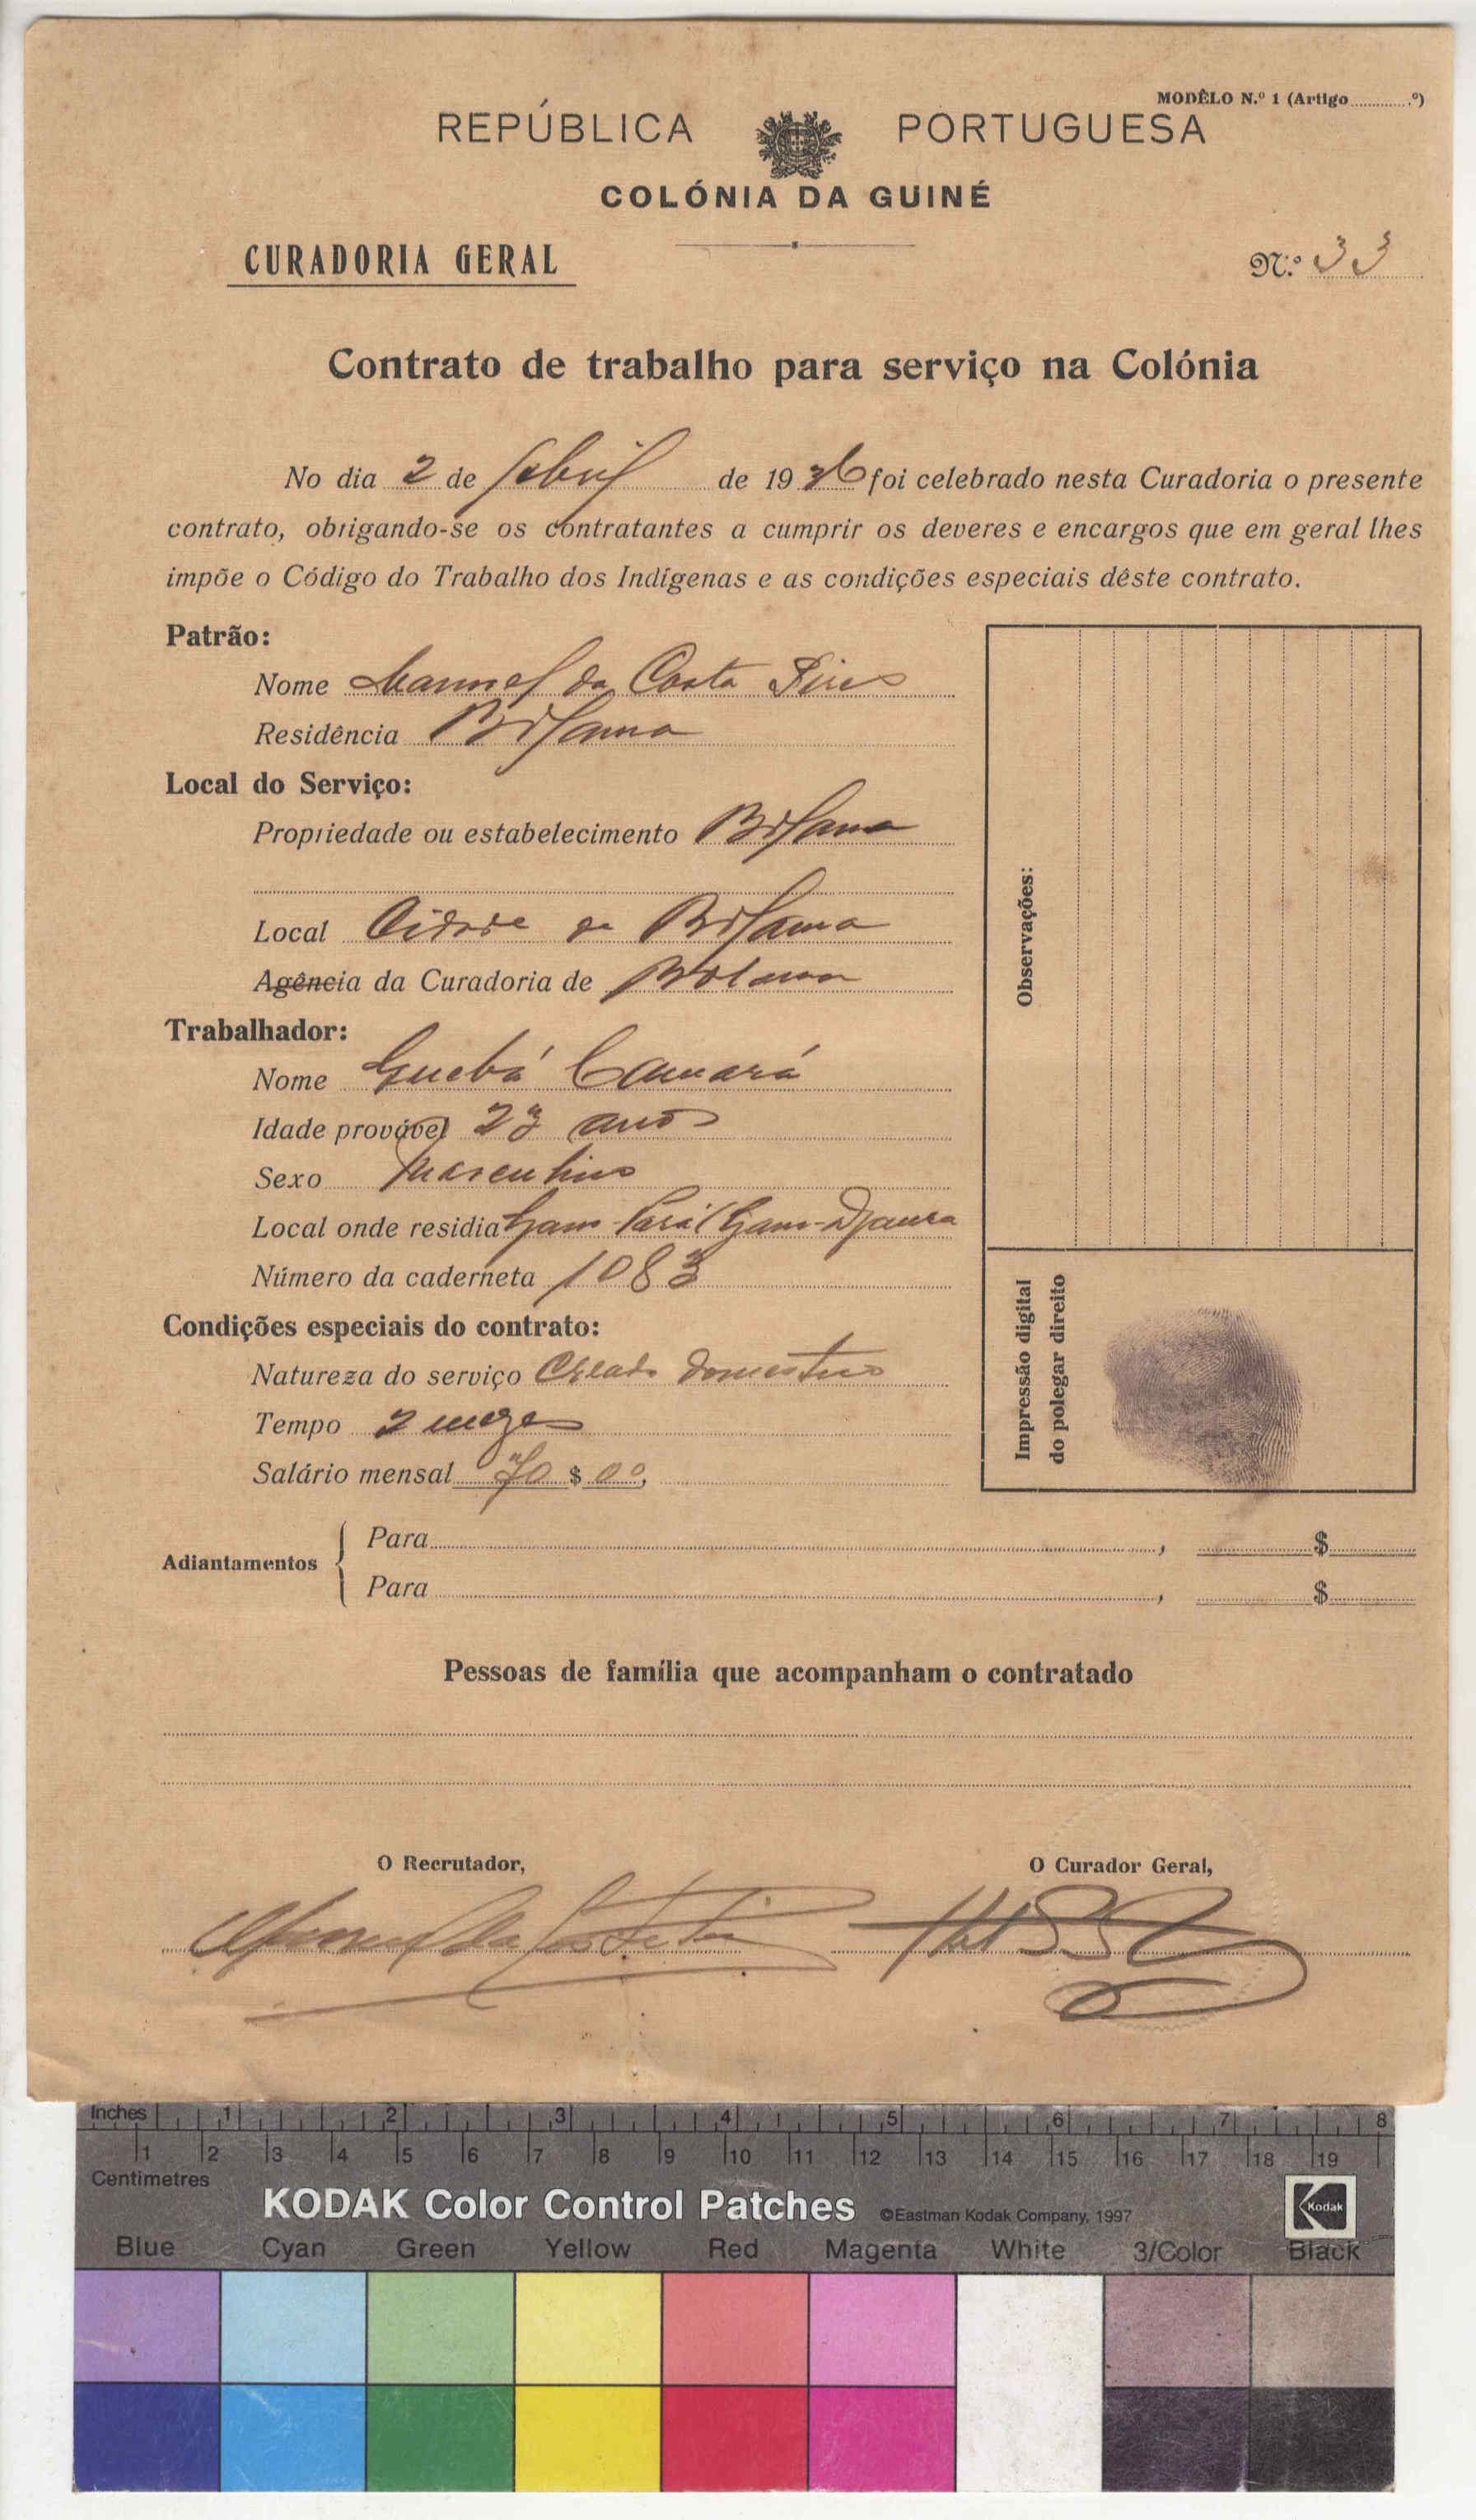 MODÊLO N.º 1 (Artigo ........º)
REPÚBLICA PORTUGUESA
COLÓNIA DA GUINÉ
CURADORIA GERAL
N.º 33
Contrato de trabalho para serviço na Colónia
No dia 2 de Abril de 1936 foi celebrado nesta Curadoria o presente
contrato, obrigando-se os contratantes a cumprir os deveres e encargos que em geral lhes
impõe o Código do Trabalho dos Indígenas e as condições especiais dêste contrato.
Patrão:
Nome Manuel da Costa Pires
Residência Bolama
Local do Serviço:
Propriedade ou estabelecimento Bolama
Local Cidade de Bolama
Agência da Curadoria de Bolama
Trabalhador:
Nome Guebá Camará
Idade provável 23 anos
Sexo Masculino
Local onde residia Gam-Pará (Gam-Djaura
Número da caderneta 1083
Condições especiais do contrato:
Natureza do serviço Creado domestico
Tempo 2 mezes
Salário mensal 70 $ 00,
Observações:
Impressão digital
do polegar direito
Adiantamentos
Para , $
Para , $
Pessoas de família que acompanham o contratado
O Recrutador,
O Curador Geral,
Manuel da Costa Pires
Inches 1 2 3 4 5 6 7 8
1 2 3 4 5 6 7 8 9 10 11 12 13 14 15 16 17 18 19
Centimetres
KODAK Color Control Patches ©Eastman Kodak Company, 1997 Kodak
Blue Cyan Green Yellow Red Magenta White 3/Color Black